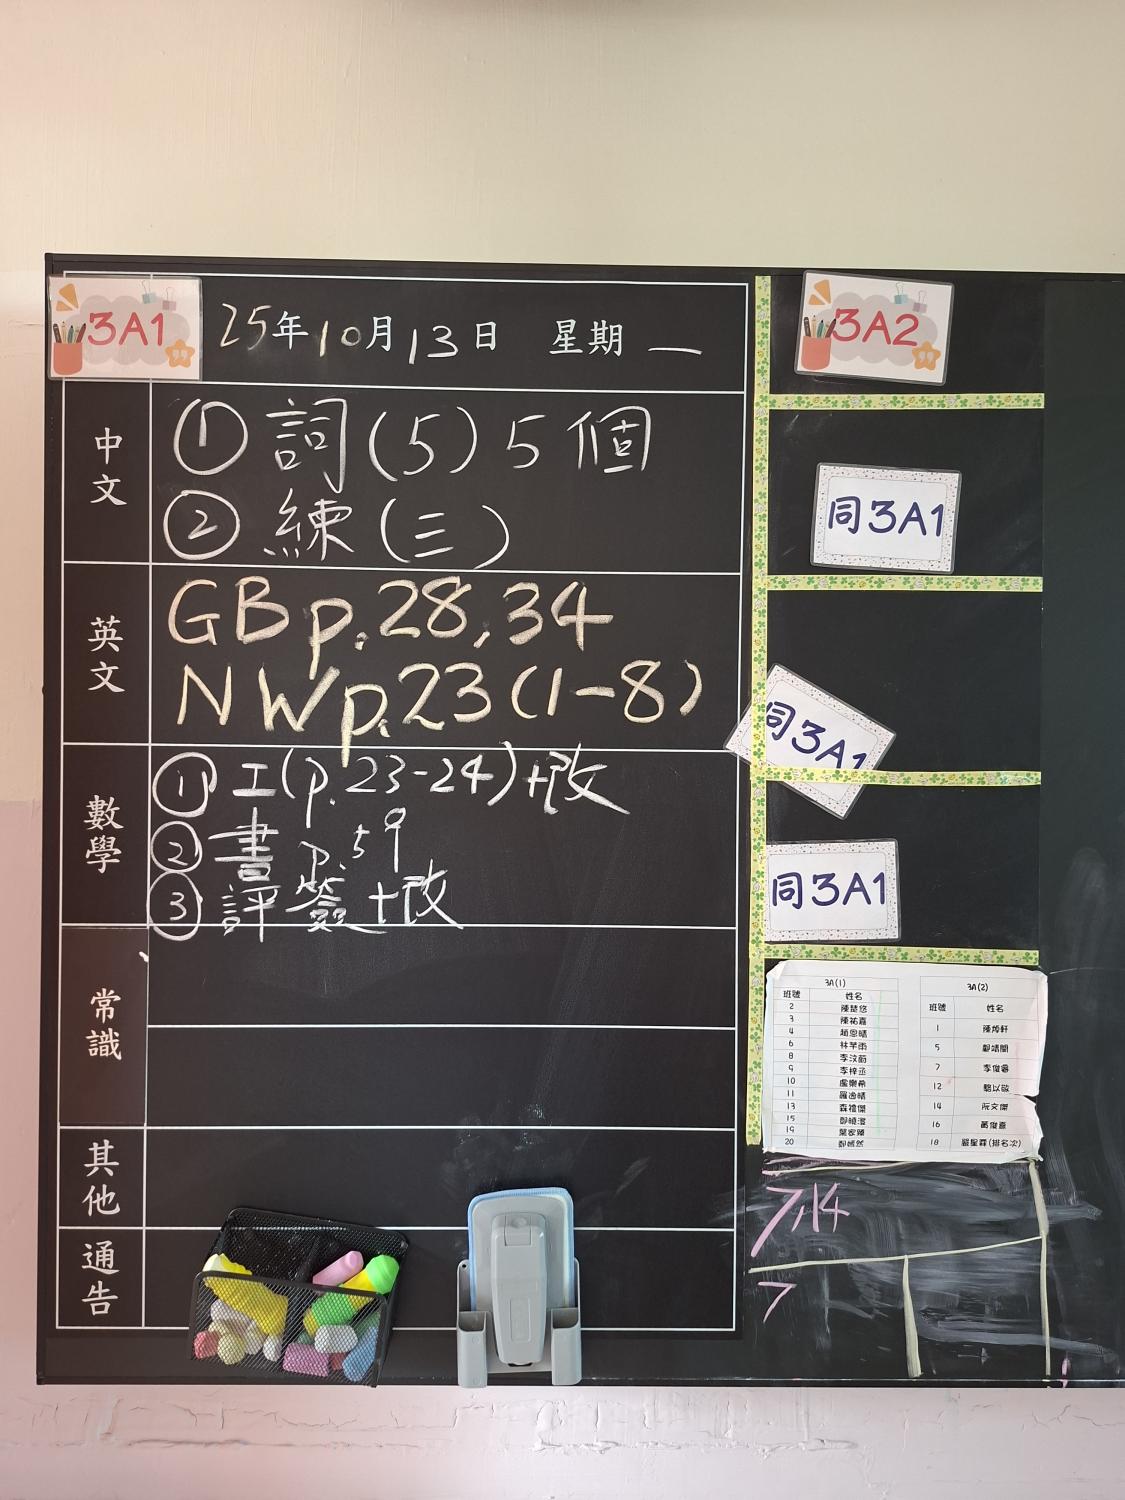 3A1
25年10月13日 星期一
中文
① 詞(5)5個
② 練(三)
英文
GB p.28,34
NW p.23(1-8)
數學
① 工(p.23-24)+改
② 書 p.59
③ 評簽+改
常識
其他
通告
3A2
同3A1
同3A1
同3A1
3A(1)
班號 姓名
2 陳楚悠
3 陳祐嘉
4 趙恩晴
6 林芊雨
8 李汶蔚
9 李梓丞
10 盧樂希
11 羅逸晴
13 森禮傑
15
19 葉家穎
20
3A(2)
班號 姓名
1 陳焯軒
5
7 李俊睿
12 駱以敬
14 阮文傑
16 黃俊熹
18 嚴星霖(排名次)
7,14
7